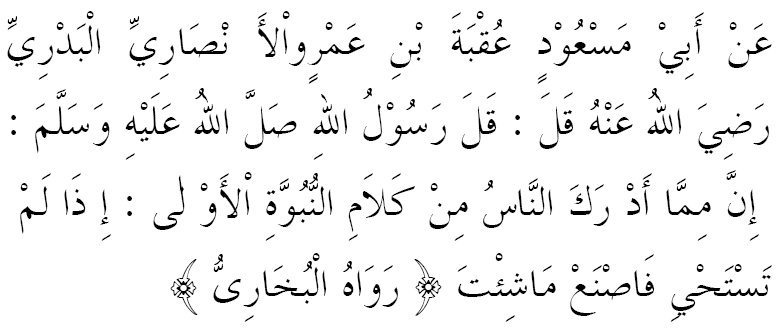 عَنْ أَبِيْ مَسْعُوْدٍ عُقْبَةَ بْنِ عَمْرٍواْلأَ نْصَارِيِّ الْبَدْرِيِّ
رَضِيَ اللهُ عَنْهُ قَلَ : قَلَ رَسُوْلُ اللهِ صَلَّ اللهُ عَلَيْهِ وَسَلَّمَ :
إِنَّ مِمَّا أَدْ رَكَ النَّاسُ مِنْ كَلَامِ النُّبُوَّةِ اْلأَوْ لى : إِ ذَا لَمْ
تَسْتَحْيِ فَاصْنَعْ مَاشِئْتَ ﴿ رَوَاهُ الْبُخَارِىُّ ﴾